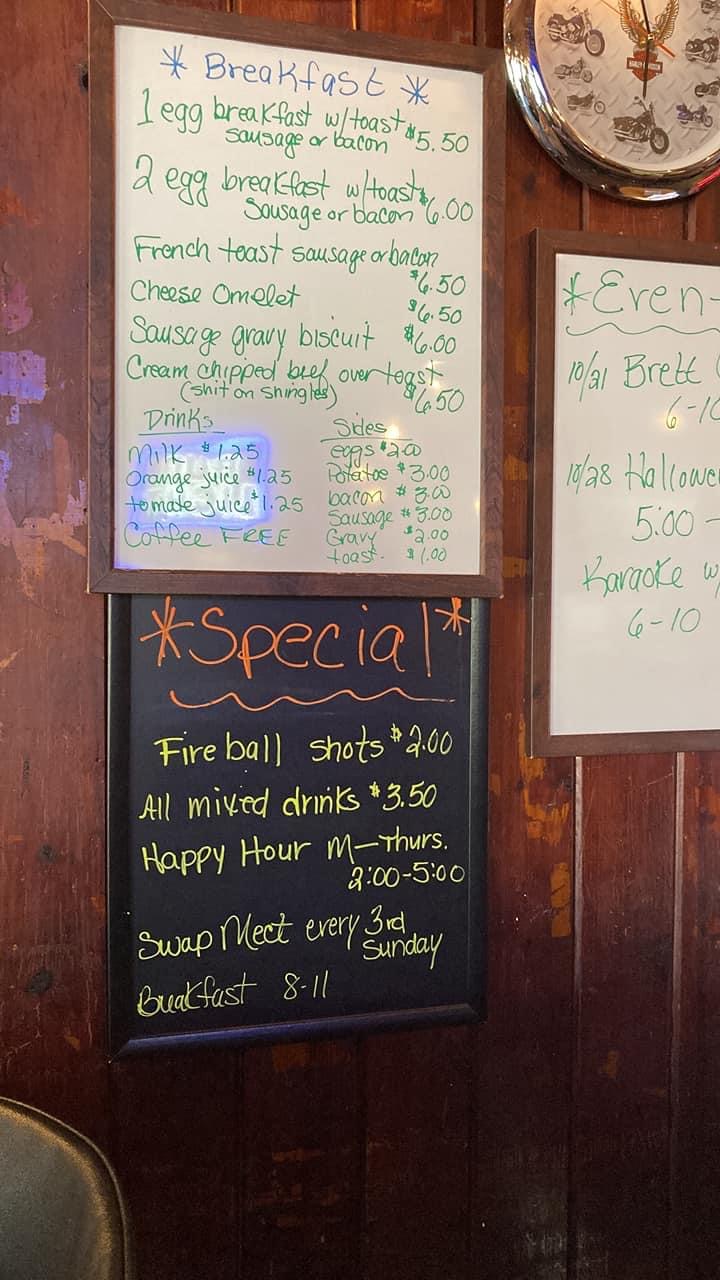 * Breakfast *
1 egg breakfast w/toast $5.50
sausage or bacon
2 egg breakfast w/toast
Sausage or bacon $6.00
French toast sausage or bacon
$6.50
Cheese Omelet $6.50
Sausage gravy biscuit $6.00
Cream chipped beef over toast
(shit on shingles) $6.50
Drinks
Milk $1.25
Orange juice $1.25
tomate juice $1.25
Coffee FREE
Sides
eggs $2.00
Potatoe $3.00
bacon $3.00
Sausage $3.00
Gravy $2.00
toast. $1.00
*Special*
Fire ball shots $2.00
All mixed drinks $3.50
Happy Hour M-Thurs.
2:00-5:00
Swap Meet every 3rd
Sunday
Breakfast 8-11
*Even
10/21 Brett
6-10
10/28 Hallowe
5:00 -
Karaoke w
6-10